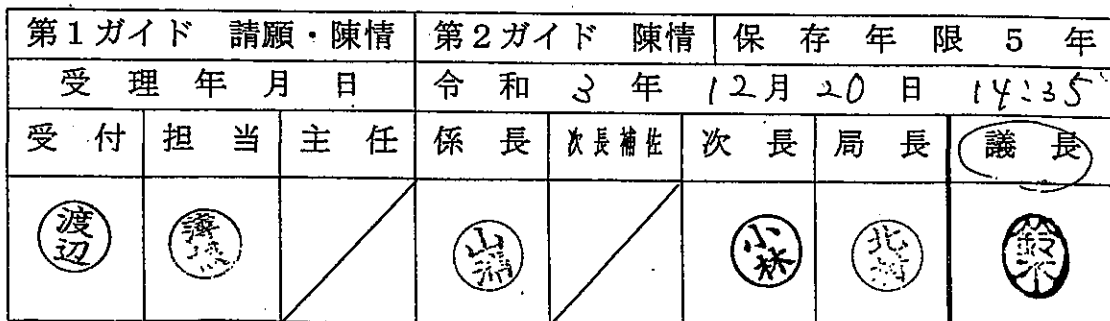 第1ガイド 請願・陳情 第2ガイド 陳情 保存年限5年
受理年月日 令和3年12月20日 14:35
受付 担当 主任 係長 次長補佐 次長 局長 議長
渡辺 小林 鈴木